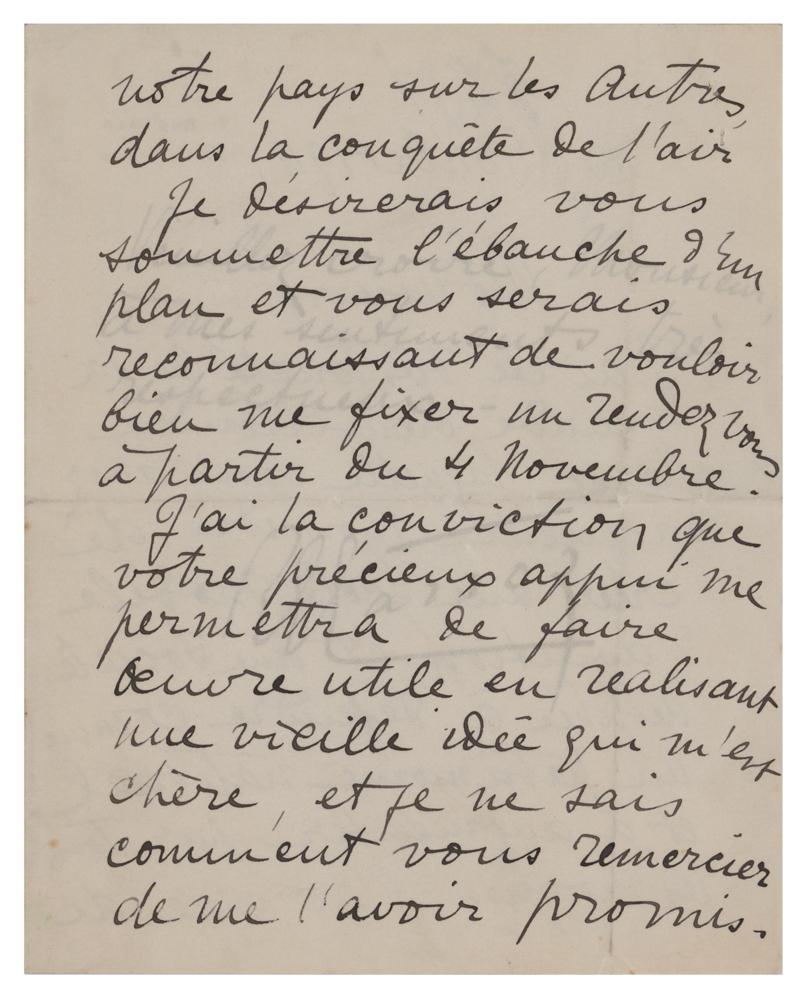 notre pays sur les Autres,
dans la conquête de l'air
Je désirerais vous
soumettre l'ébauche d'un
plan et vous serais
reconnaissant de vouloir
bien me fixer un rendez vous
à partir du 4 Novembre.
J'ai la conviction que
votre précieux appui me
permettra de faire
œuvre utile en realisant
une vieille idée qui m'est
chère, et je ne sais
comment vous remercier
de me l'avoir promis.